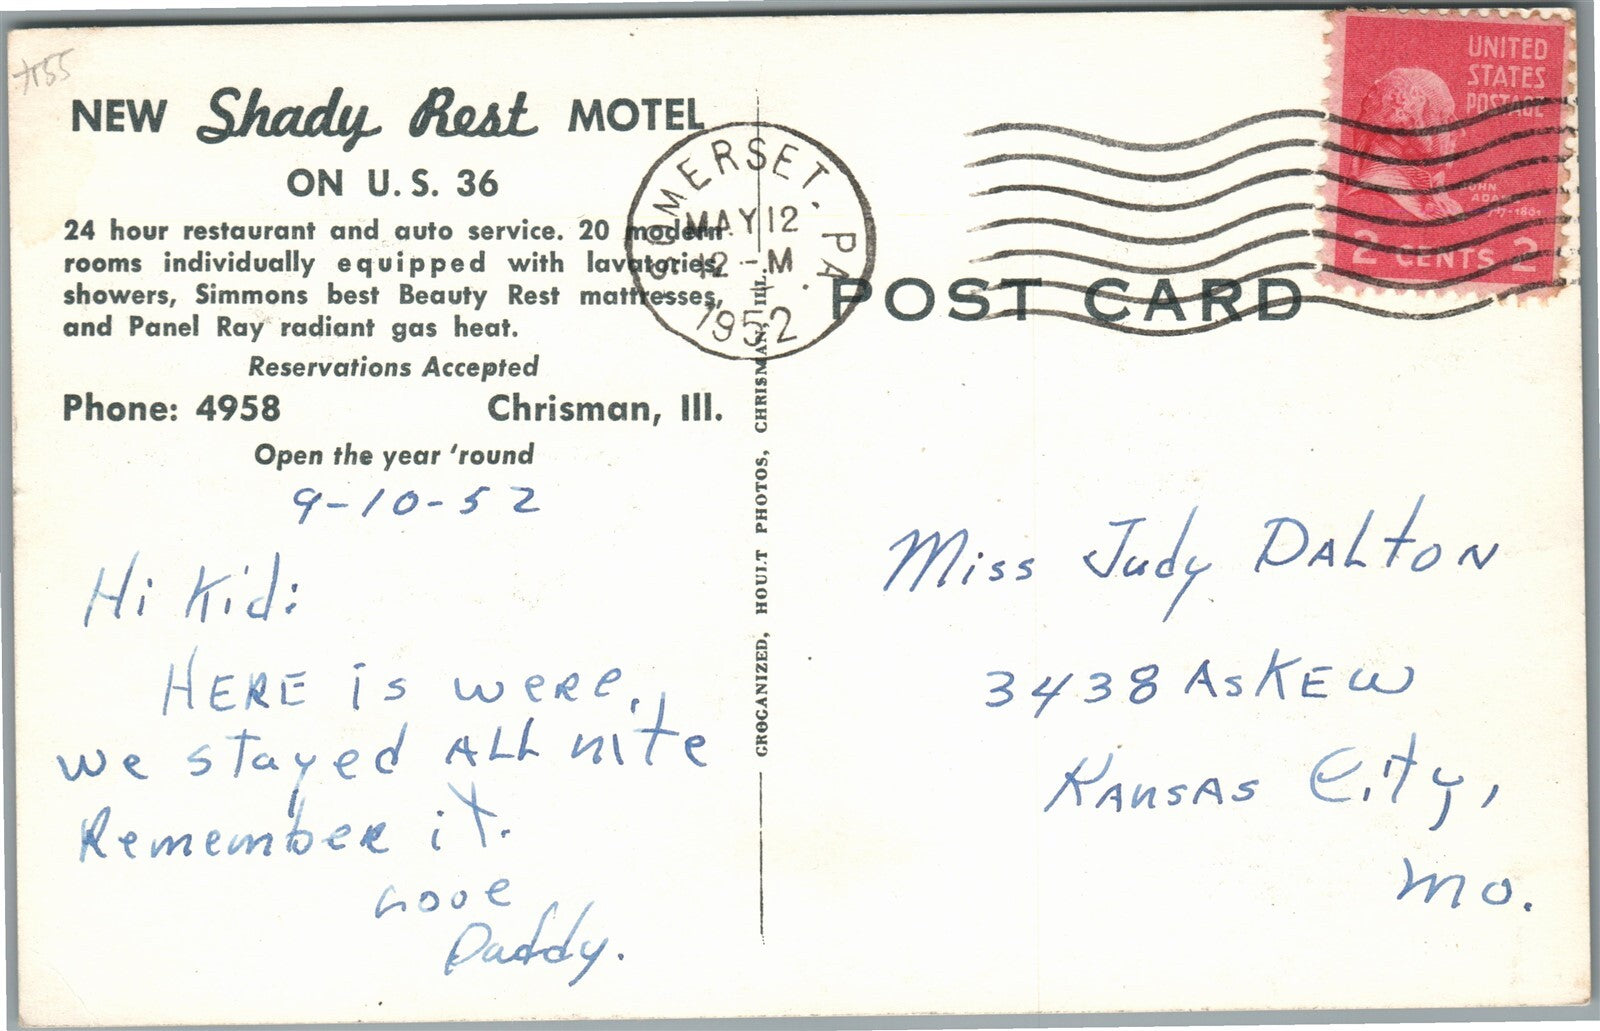 7155
NEW Shady Rest MOTEL
ON U. S. 36
24 hour restaurant and auto service. 20 modern
rooms individually equipped with lavatories,
showers, Simmons best Beauty Rest mattresses,
and Panel Ray radiant gas heat.
Reservations Accepted
Phone: 4958 Chrisman, Ill.
Open the year 'round
9-10-52
Hi Kid:
HERE is were,
we stayed ALL nite
Remember it.
Love
Daddy.
GROGANIZED, HOULT PHOTOS, CHRISMAN, ILL.
SOMERSET, PA.
MAY 12
12 - M
1952
UNITED
STATES
POSTAGE
JOHN
ADAMS
1797-1801
2 CENTS 2
POST CARD
Miss Judy DALTON
3438 ASKEW
KANSAS City,
Mo.